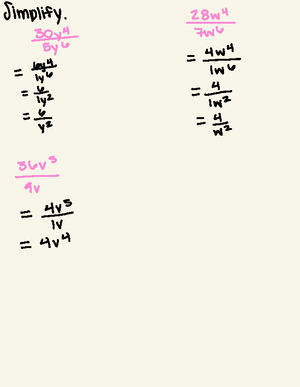 Simplify.
30y⁴/5y⁶
= 6y⁴/1y⁶
= 6/1y²
= 6/y²
28w⁴/7w⁶
= 4w⁴/1w⁶
= 4/1w²
= 4/w²
36v⁵/9v
= 4v⁵/1v
= 4v⁴